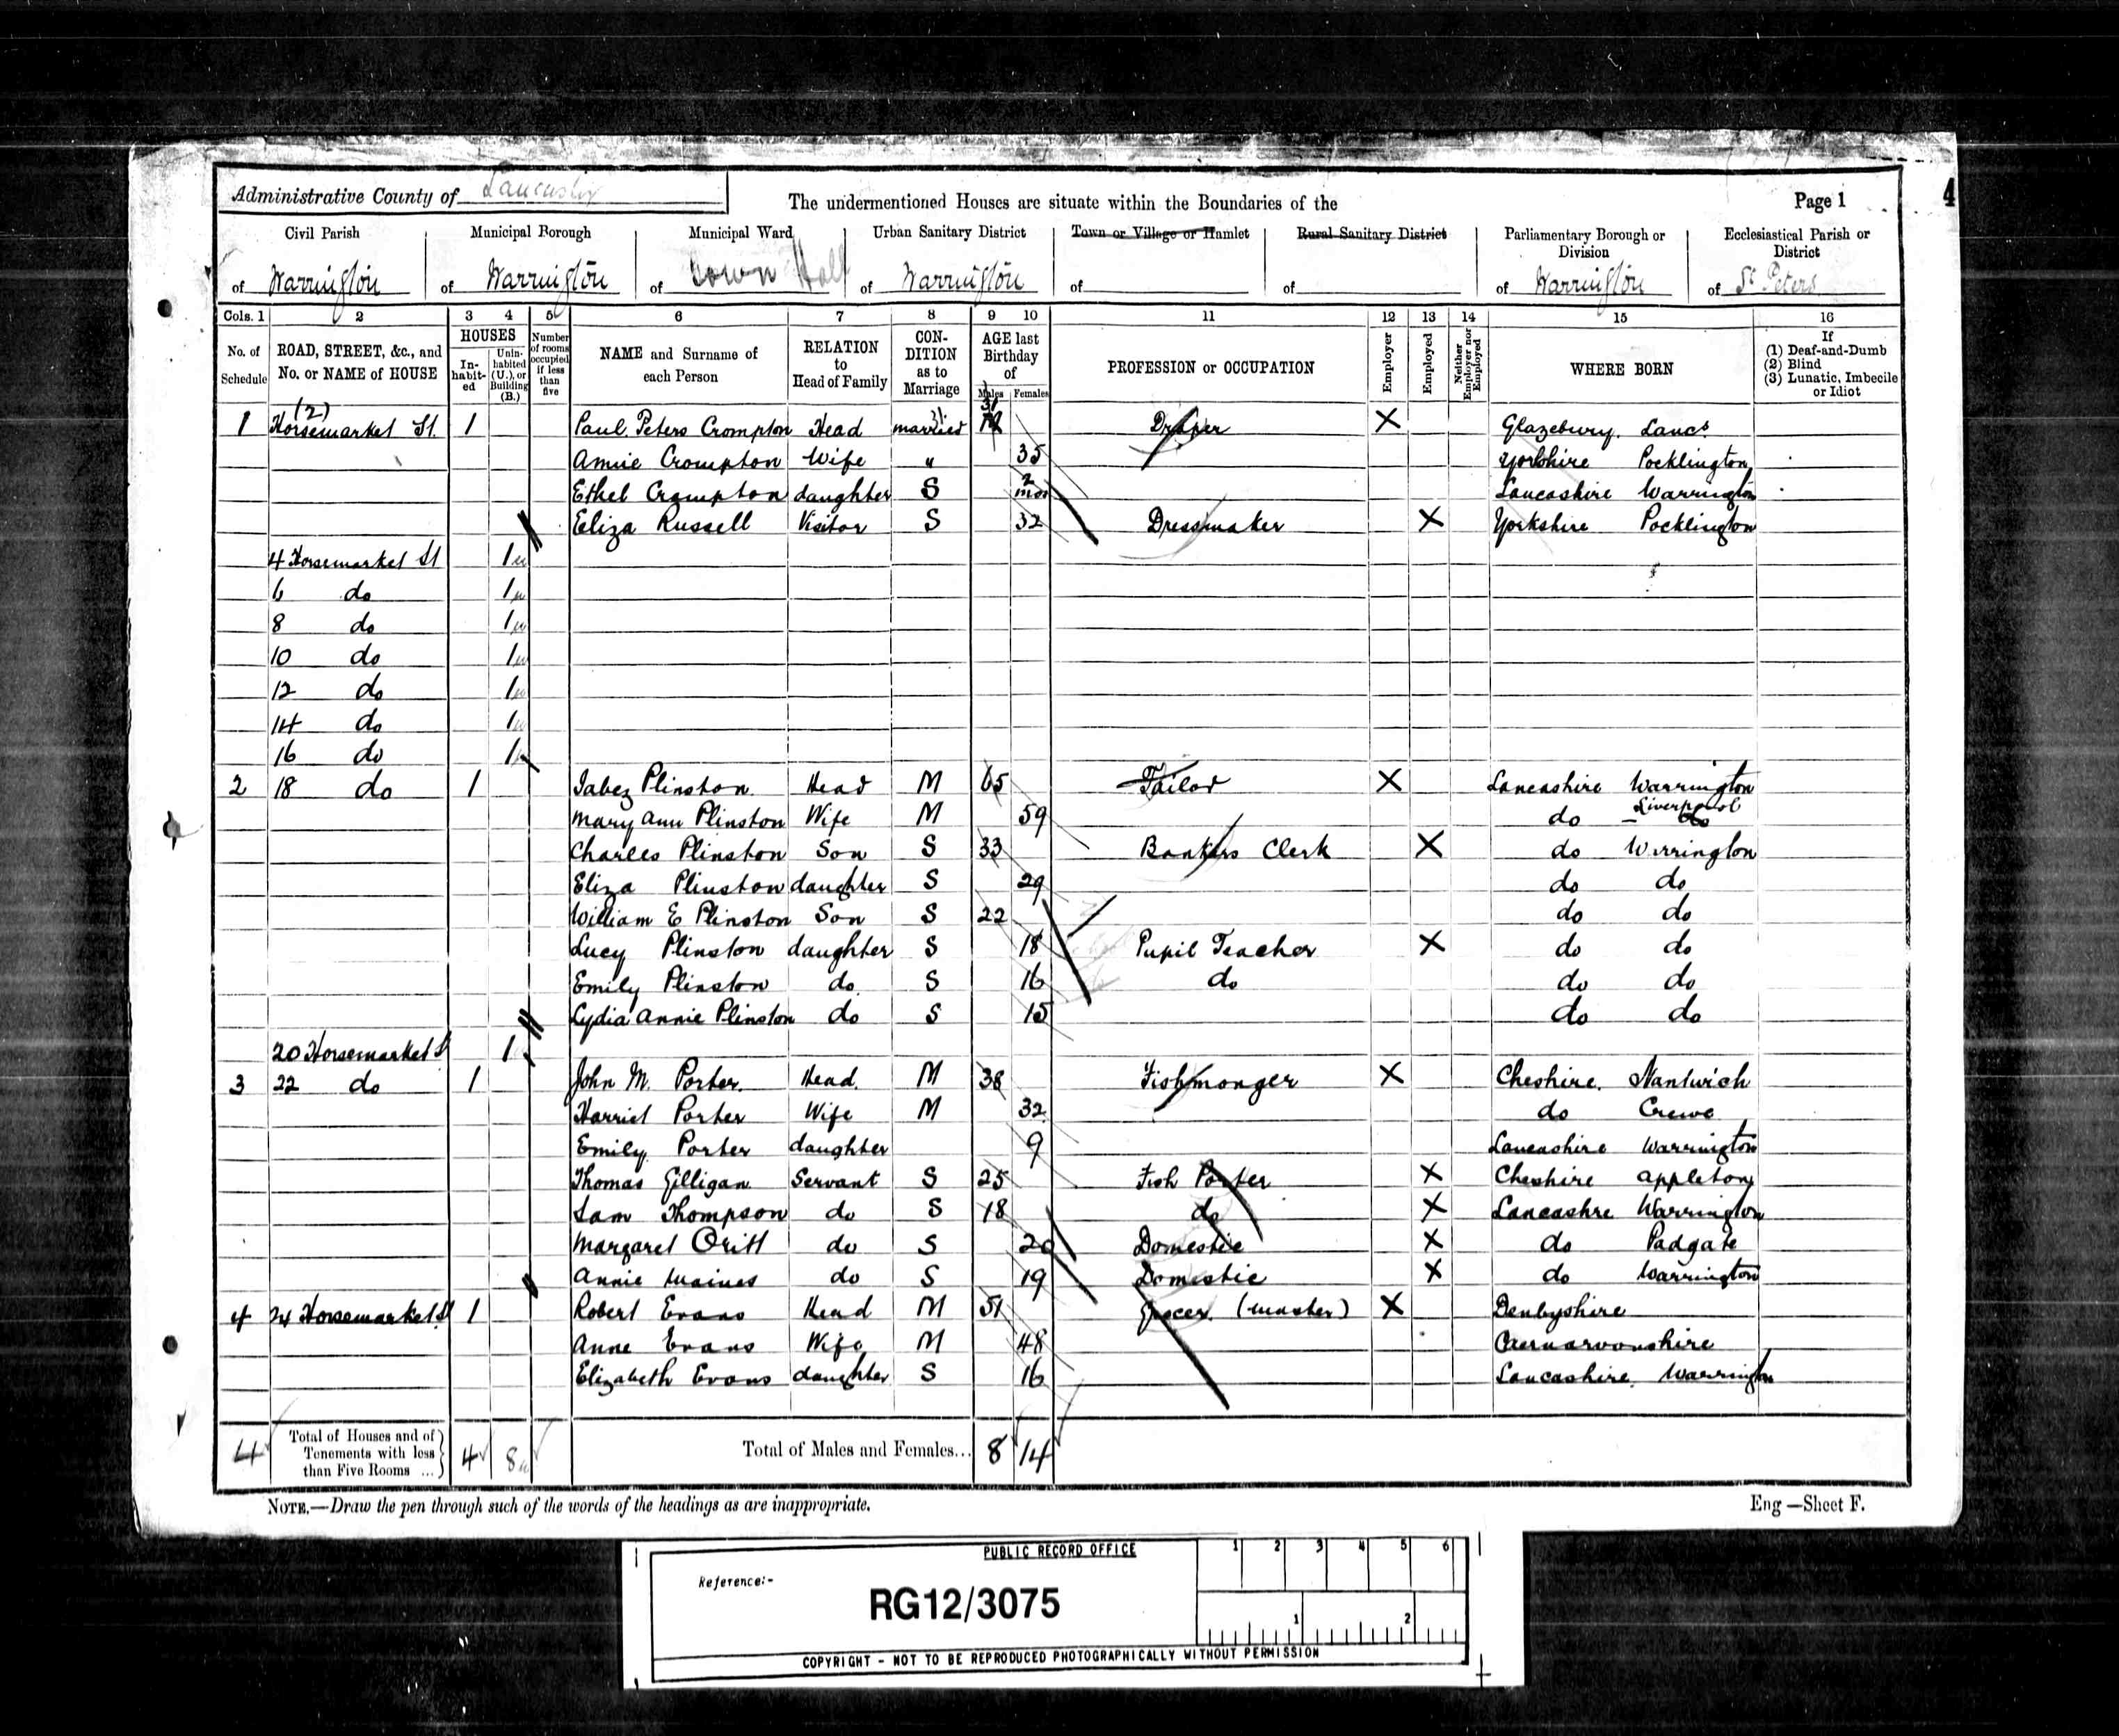 Administrative County of Lancaster
The undermentioned Houses are situate within the Boundaries of the
Page 1
4
Civil Parish of Warrington
Municipal Borough of Warrington
Municipal Ward of Town Hall
Urban Sanitary District of Warrington
Town or Village or Hamlet of
Rural Sanitary District of
Parliamentary Borough or Division of Warrington
Ecclesiastical Parish or District of St Peters
Cols. 1 2 3 4 5 6 7 8 9 10 11 12 13 14 15 16
No. of Schedule
ROAD, STREET, &c., and No. or NAME of HOUSE
HOUSES
In-habit-ed
Unin-habited (U.), or Building (B.)
Number of rooms occupied if less than five
NAME and Surname of each Person
RELATION to Head of Family
CON-DITION as to Marriage
AGE last Birthday of
Males Females
PROFESSION or OCCUPATION
Employer
Employed
Neither Employer nor Employed
WHERE BORN
If (1) Deaf-and-Dumb (2) Blind (3) Lunatic, Imbecile or Idiot
1 (2) Horsemarket St. 1 Paul Peters Crompton Head married 31 Draper X Glazebury. Lancs.
Annie Crompton Wife " 35 Yorkshire Pocklington
Ethel Crompton daughter S 2 mos Lancashire Warrington
Eliza Russell Visitor S 32 Dressmaker X Yorkshire Pocklington
4 Horsemarket St 1u
6 do 1u
8 do 1u
10 do 1u
12 do 1u
14 do 1u
16 do 1u
2 18 do 1 Jabez Plinston. Head M 65 Tailor X Lancashire Warrington
Mary Ann Plinston Wife M 59 do Liverpool do
Charles Plinston Son S 33 Bankers Clerk X do Warrington
Eliza Plinston daughter S 29 do do
William E Plinston Son S 22 do do
Lucy Plinston daughter S 18 Pupil Teacher X do do
Emily Plinston do S 16 do do do
Lydia Annie Plinston do S 15 do do
20 Horsemarket St 1
3 22 do 1 John M. Porter. Head. M 38 Fishmonger X Cheshire. Nantwich
Harriet Porter Wife M 32 do Crewe
Emily Porter daughter 9 Lancashire Warrington
Thomas Gilligan Servant S 25 Fish Porter X Cheshire Appleton
Sam Thompson do S 18 do X Lancashre Warrington
Margaret do S 20 Domestic X do Padgate
Annie do S 19 Domestic X do Warrington
4 24 Horsemarket St 1 Robert Evans Head M 51 Grocer (Master) X Denbyshire
Anne Evans Wife M 48 Caernarvonshire
Elizabeth Evans daughter S 16 Lancashire. Warrington
4 Total of Houses and of Tenements with less than Five Rooms ... 4 8u Total of Males and Females... 8 14
NOTE.—Draw the pen through such of the words of the headings as are inappropriate.
Eng —Sheet F.
PUBLIC RECORD OFFICE
1 2 3 4 5 6
Reference:-
RG12/3075
1 2
COPYRIGHT - NOT TO BE REPRODUCED PHOTOGRAPHICALLY WITHOUT PERMISSION